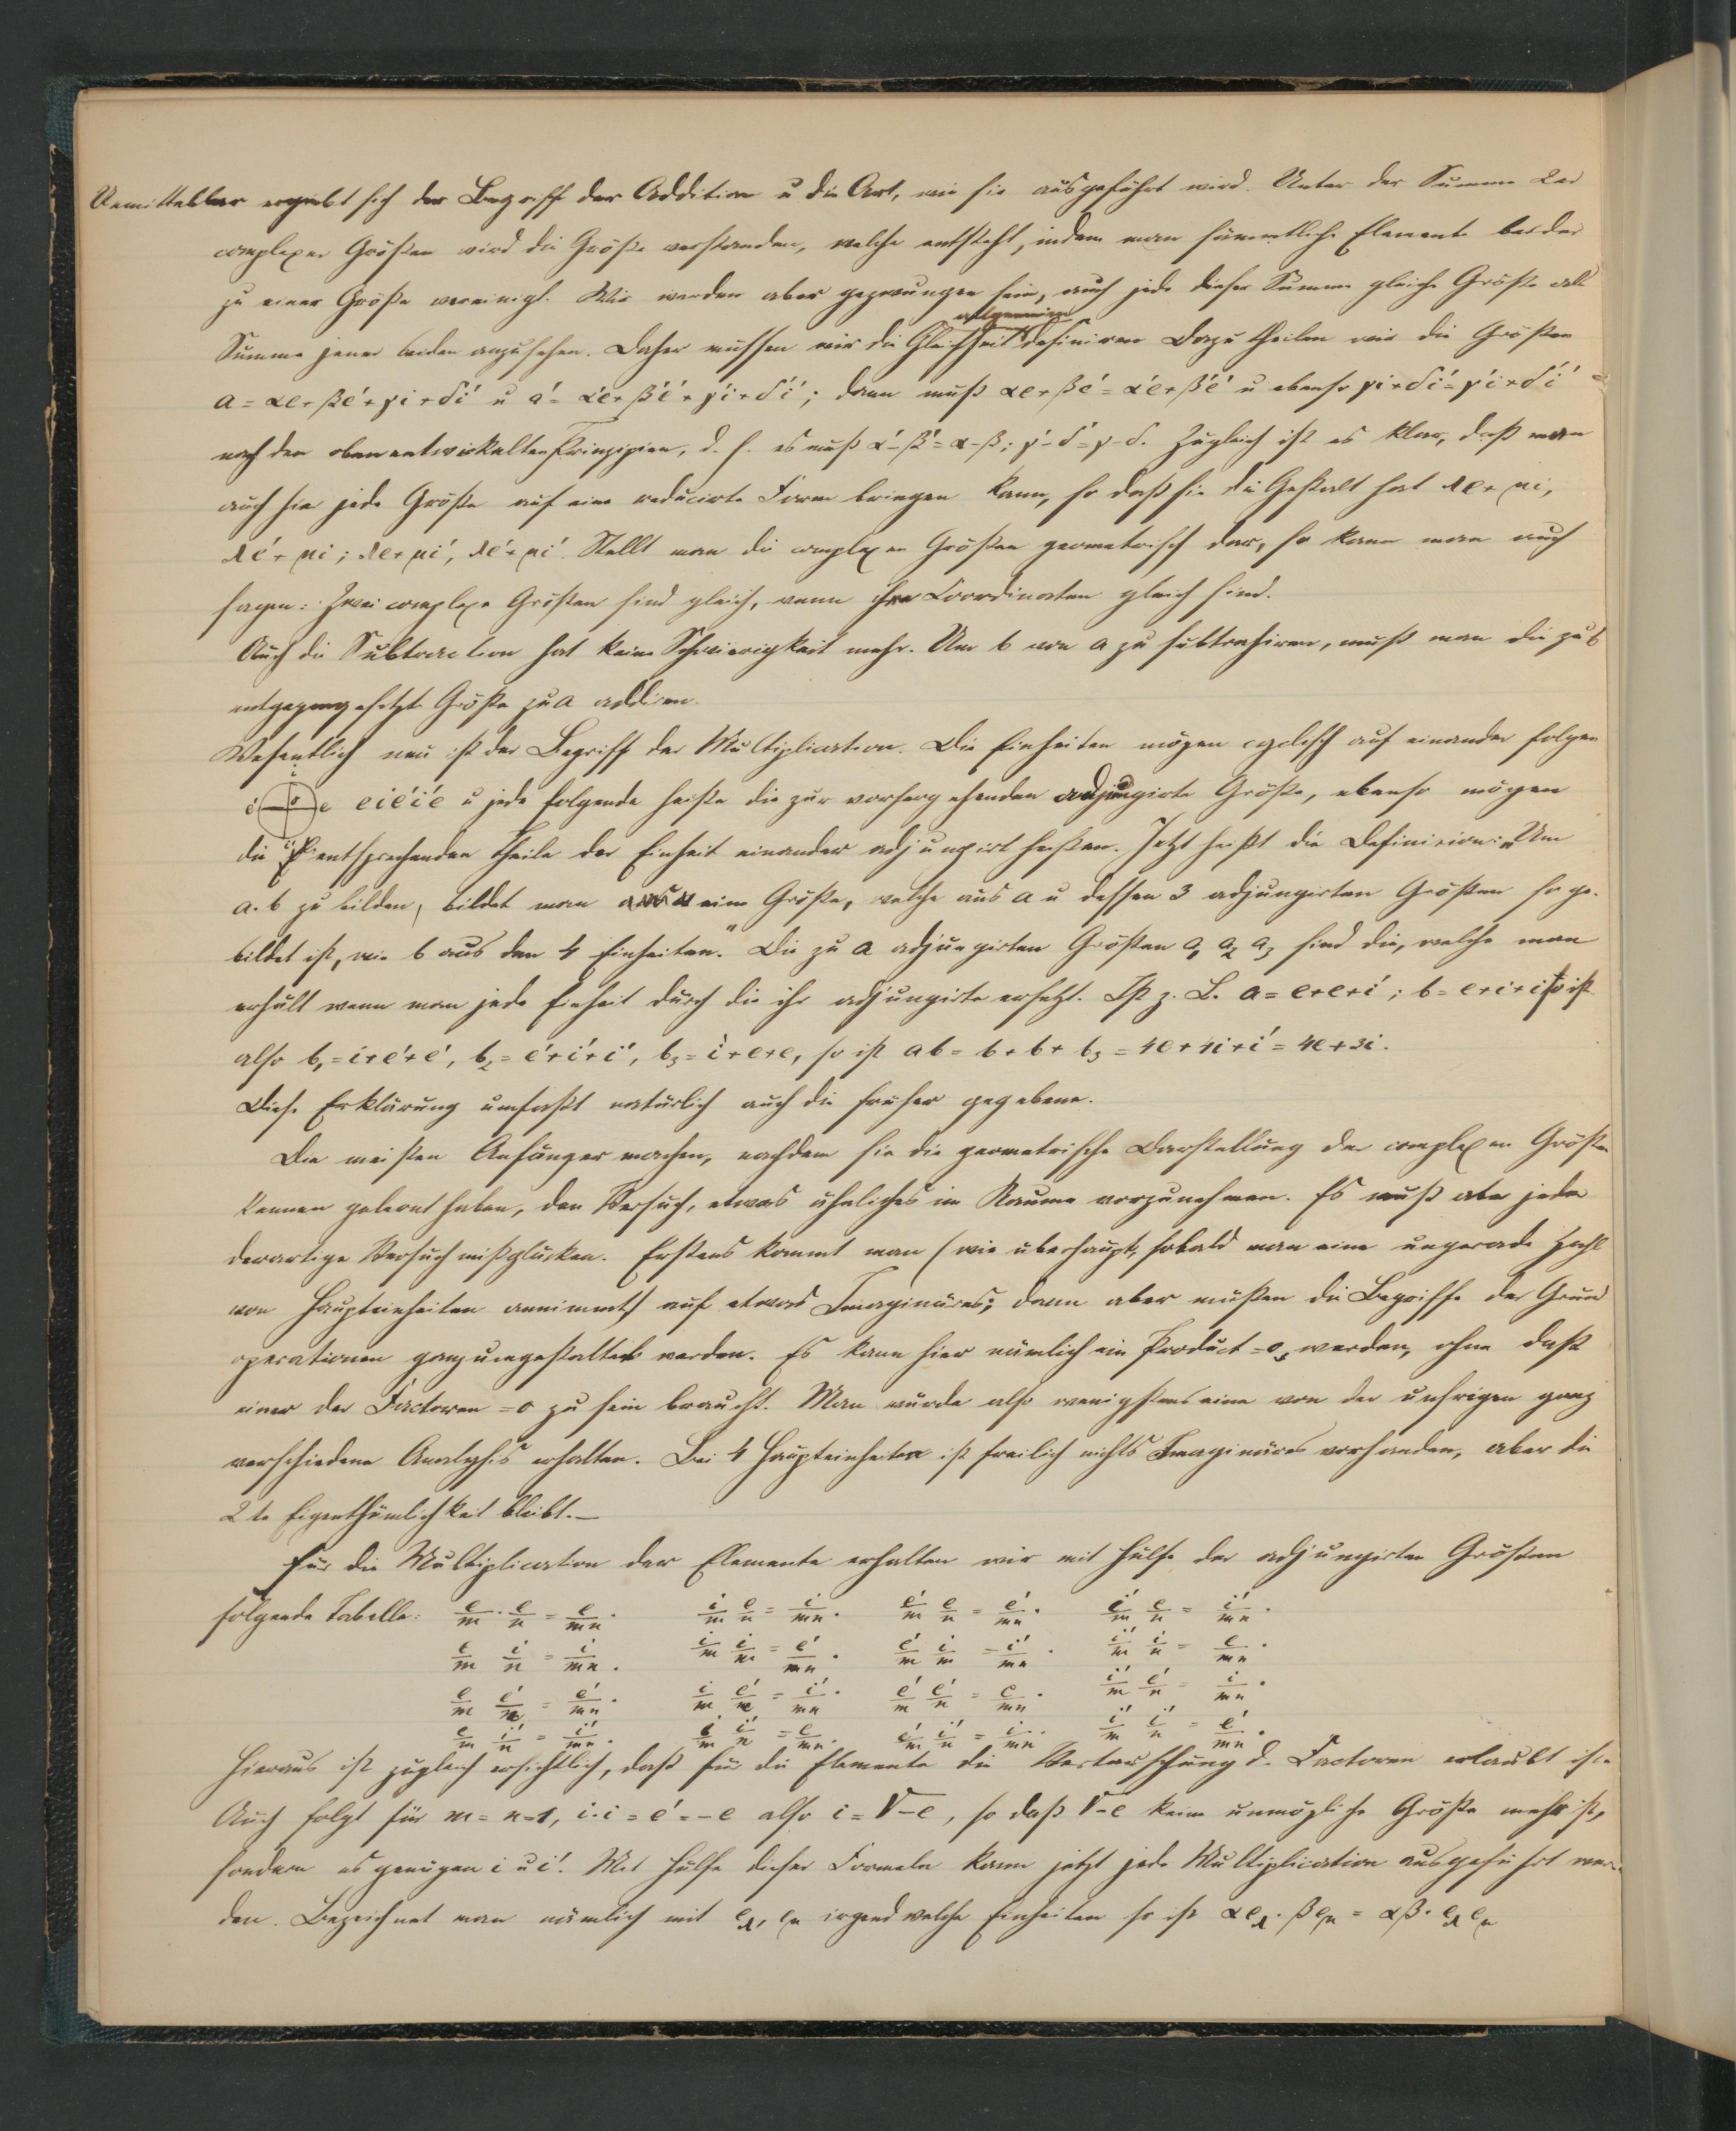 Unmittelbar ergiebt sich der Begriff der Addition u die Art, wie sie ausgeführt wird. Unter der Summe 2er
complexer Größen wird die Größe verstanden, welche entsteht, indem man sämmtliche Elemente beider
zu einer Größe vereinigt. Wir werden aber gezwungen sein, auch jede dieser Summe gleiche Größe als
allgemein
Summe jener beiden anzusehen. Daher müssen wir die Gleichheit definiren. Dazu theilen wir die Größen
a = αe+βe'+γi+δi' u a' = α'e+β'e'+γ'i+δ'i'; dann muß αe+βe' = α'e+β'e' u ebenso γi+δi' = γ'i+δ'i'
nach den oben entwickelten Prinzipien, d. h. es muß α'-β' = α-β; γ'-δ' = γ-δ. Zugleich ist es klar, daß man
auch hier jede Größe auf eine reducirte Form bringen kann, so daß sie die Gestalt hat λe+μi,
λe'+μi; λe+μi', λe'+μi'. Stellt man die complexen Größen geometrisch dar, so kann man auch
sagen: Zwei complexe Größen sind gleich, wenn ihre Coordinaten gleich sind.
Auch die Subtraction hat keine Schwierigkeit mehr. Um b von a zu subtrahiren, muß man die zu b
entgegengesetzte Größe zu a addiren.
Wesentlich neu ist der Begriff der Multiplication. Die Einheiten mögen cyclisch auf einander folgen
i
e' o e e i e' i' e u jede folgende heiße die zur vorhergehenden adjungirte Größe, ebenso mögen
i'
die entsprechenden Theile der Einheit einander adjungirt heißen. Jetzt heißt die Definition: „Um
a.b zu bilden, bildet man eine Größe, welche aus a u dessen 3 adjungirten Größen so ge-
bildet ist, wie b aus den 4 Einheiten." Die zu a adjungirten Größen a₁ a₂ a₃ sind die, welche man
erhält wenn man jede Einheit durch die ihr adjungirte ersetzt. Ist z. B. a = e+e+i'; b = e+i+i so ist
also b₁ = i+e'+e', b₂ = e'+i'+i', b₃ = i'+e+e, so ist ab = b+b+b₃ = 4e+4i+i' = 4e+3i.
Diese Erklärung umfaßt natürlich auch die früher gegebene.
Die meisten Anfänger machen, nachdem sie die geometrische Darstellung der complexen Größen
kennen gelernt haben, den Versuch, etwas ähnliches im Raume vorzunehmen. Es muß aber jeder
derartige Versuch mißglücken. Erstens kommt man (wie überhaupt, sobald man eine ungerade Zahl
von Haupteinheiten annimmt) auf etwas Imaginäres; dann aber müßten die Begriffe der Grund
operationen ganz umgestaltet werden. Es kann hier nämlich ein Product = 0 werden, ohne daß
einer der Factoren = 0 zu sein braucht. Man würde also wenigstens eine von der unsrigen ganz
verschiedene Analysis erhalten. Bei 4 Haupteinheiten ist freilich nichts Imaginäres vorhanden, aber die
2te Eigenthümlichkeit bleibt. —
Für die Multiplication der Elemente erhalten wir mit Hülfe der adjungirten Größen
folgende Tabelle: e/m · e/n = e/mn. i/m e/n = i/mn. e'/m e/n = e'/mn. i'/m e/n = i'/mn.
e/m i/n = i/mn. i/m i/n = e'/mn. e'/m i/n = i'/mn. i'/m i/n = e/mn.
e/m e'/n = e'/mn. i/m e'/n = i'/mn. e'/m e'/n = e/mn. i'/m e'/n = i/mn.
e/m i'/n = i'/mn. i/m i'/n = e/mn. e'/m i'/n = i/mn. i'/m i'/n = e'/mn.
Hieraus ist zugleich ersichtlich, daß für die Elemente die Vertauschung d. Factoren erlaubt ist.
Auch folgt für m = n = 1, i·i = e' = -e also i = √-e, so daß √-e keine unmögliche Größe mehr ist,
sondern es genügen i u i'. Mit Hülfe dieser Formeln kann jetzt jede Multiplication ausgeführt wer-
den. Bezeichnet man nämlich mit e_λ, e_μ irgend welche Einheiten so ist αe_λ · βe_μ = αβ · e_λ e_μ